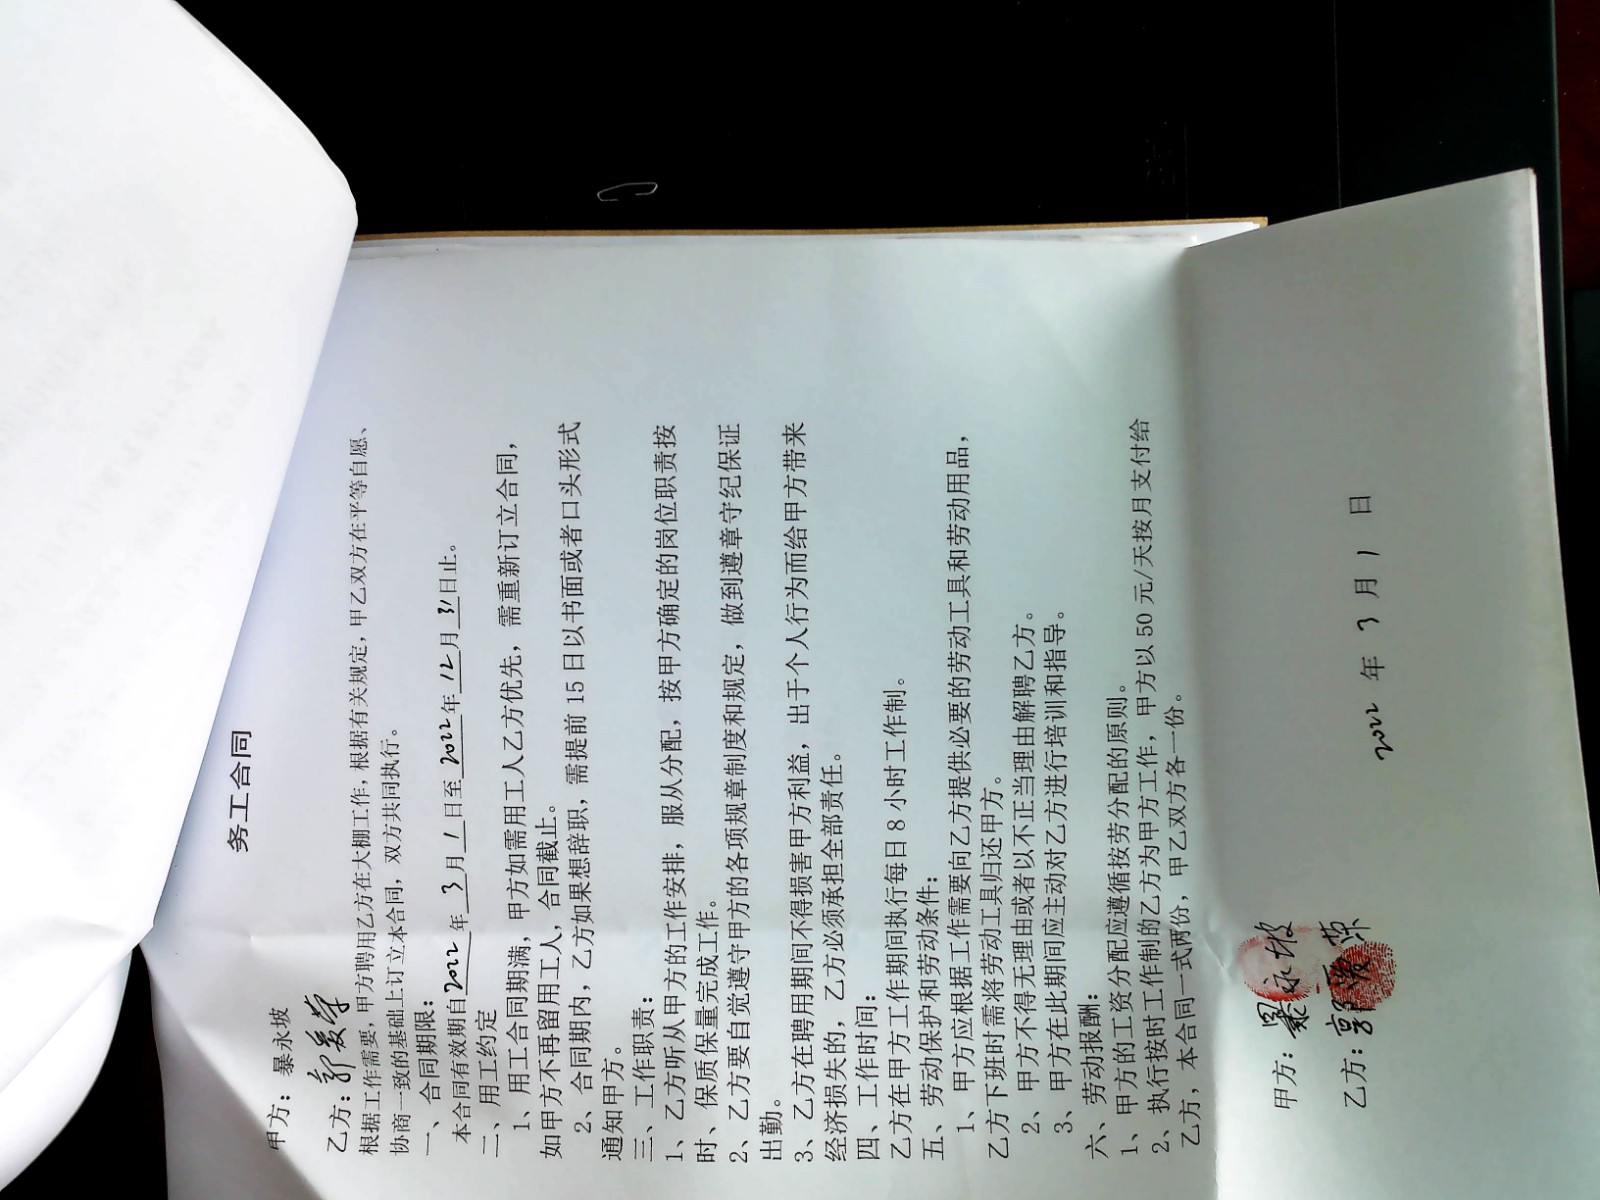 务工合同
甲方：暴永坡
乙方：郭
根据工作需要，甲方聘用乙方在大棚工作，根据有关规定，甲乙双方在平等自愿、
协商一致的基础上订立本合同，双方共同执行。
一、合同期限：
本合同有效期自2022年3月1日至2022年12月31日止。
二、用工约定
1、用工合同期满，甲方如需用工人乙方优先，需重新订立合同，
如甲方不再留用工人，合同截止。
2、合同期内，乙方如果想辞职，需提前15日以书面或者口头形式
通知甲方。
三、工作职责：
1、乙方听从甲方的工作安排，服从分配，按甲方确定的岗位职责按
时、保质保量完成工作。
2、乙方要自觉遵守甲方的各项规章制度和规定，做到遵章守纪保证
出勤。
3、乙方在聘用期间不得损害甲方利益，出于个人行为而给甲方带来
经济损失的，乙方必须承担全部责任。
四、工作时间：
乙方在甲方工作期间执行每日8小时工作制。
五、劳动保护和劳动条件：
1、甲方应根据工作需要向乙方提供必要的劳动工具和劳动用品，
乙方下班时需将劳动工具归还甲方。
2、甲方不得无理由或者以不正当理由解聘乙方。
3、甲方在此期间应主动对乙方进行培训和指导。
六、劳动报酬：
1、甲方的工资分配应遵循按劳分配的原则。
2、执行按时工作制的乙方为甲方工作，甲方以50元/天按月支付给
乙方，本合同一式两份，甲乙双方各一份。
甲方：暴永坡
乙方：郭
2022年3月1日